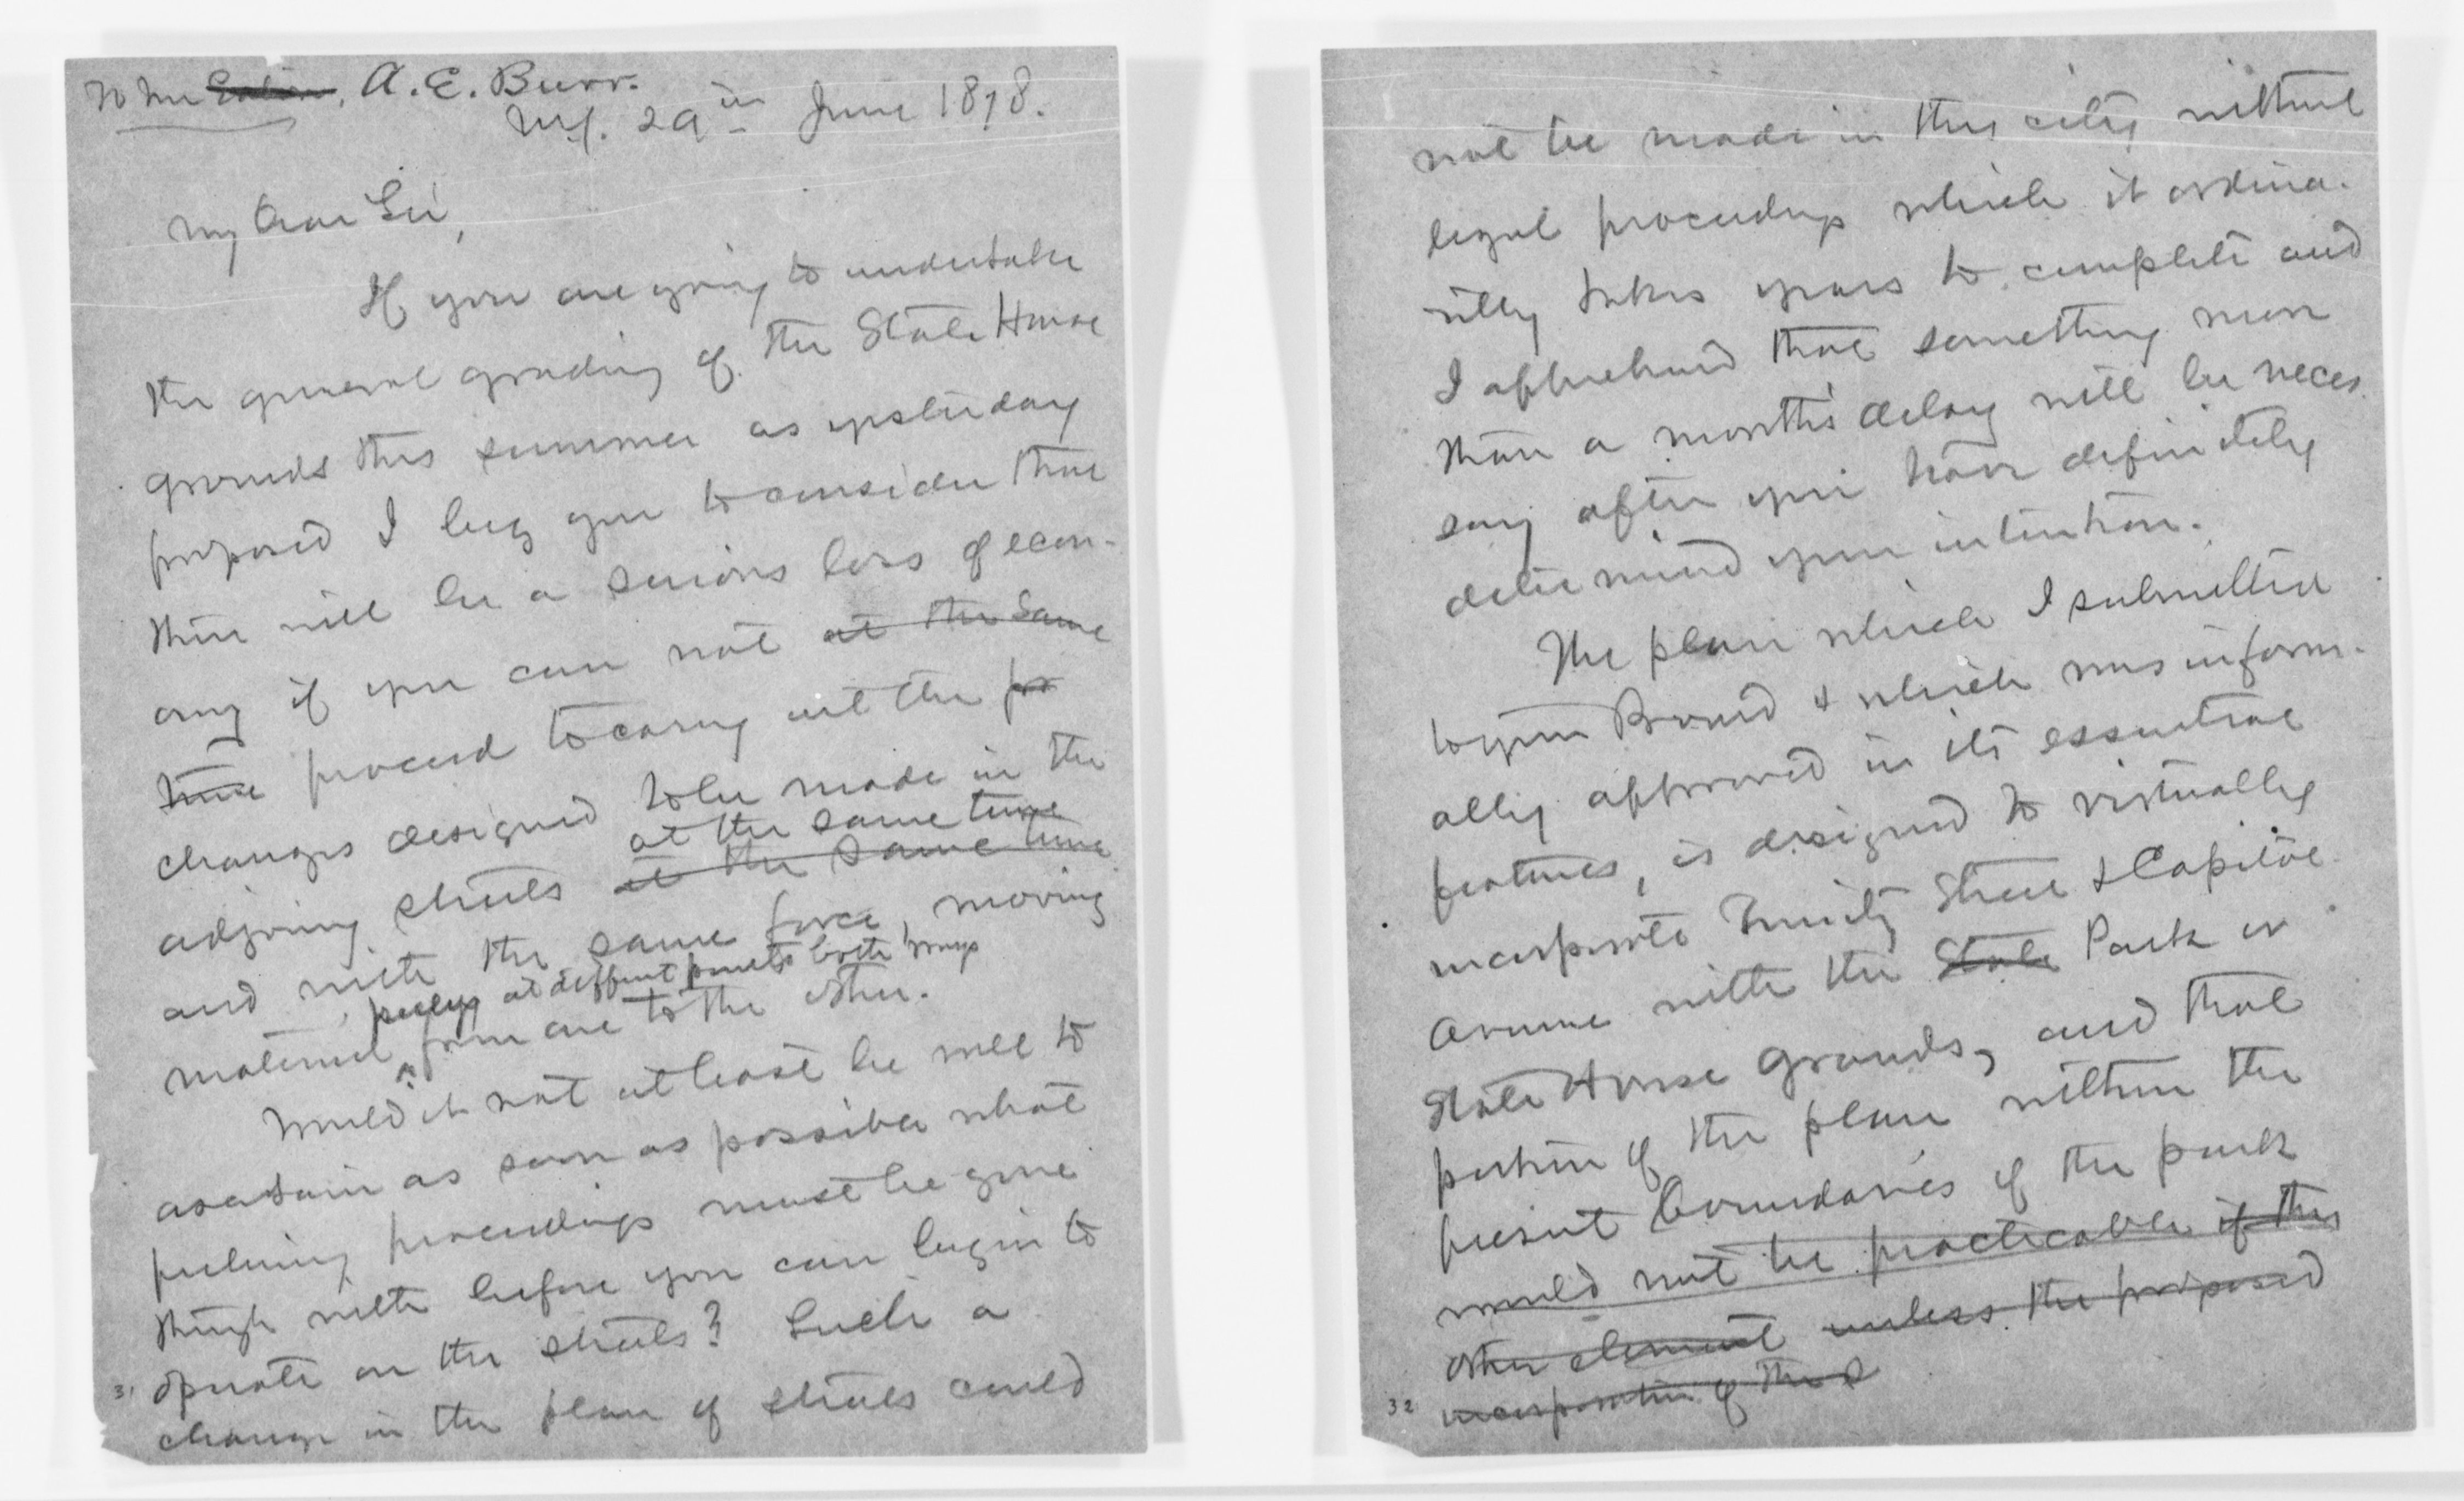 To Mr Eaton, A. E. Burr.
N.Y. 29th June 1878.
My Dear Sir,
If you are going to undertake
the general grading of the State House
grounds this summer as yesterday
proposed I beg you to consider that
there will be a serious loss of econ-
omy if you can not at the same
time proceed to carry out the pro
changes designed to be made in the
at the same time
adjoining streets at the same time
and with the same force, moving
partly at different points both ways
material from one to the other.
Would it not at least be well to
ascertain as soon as possible what
preliminy proceedings must be gone
through with before you can begin to
operate on the streets? Such a
31
change in the plan of streets could
not be made in this city without
legal proceedings which it ordina-
rilly takes years to complete and
I apprehend that something more
than a month's delay will be neces
sary after you have definitely
determined your intention.
The plan which I submitted
to your Board & which was inform-
ally approved in its essential
features, is designed to virtually
incorporate Trinity Street & Capitol
Avenue with the State Park or
State House grounds, and that
portion of the plan within the
present boundaries of the park
would not be practicable if this
other element unless the proposed
32 incorporation of these